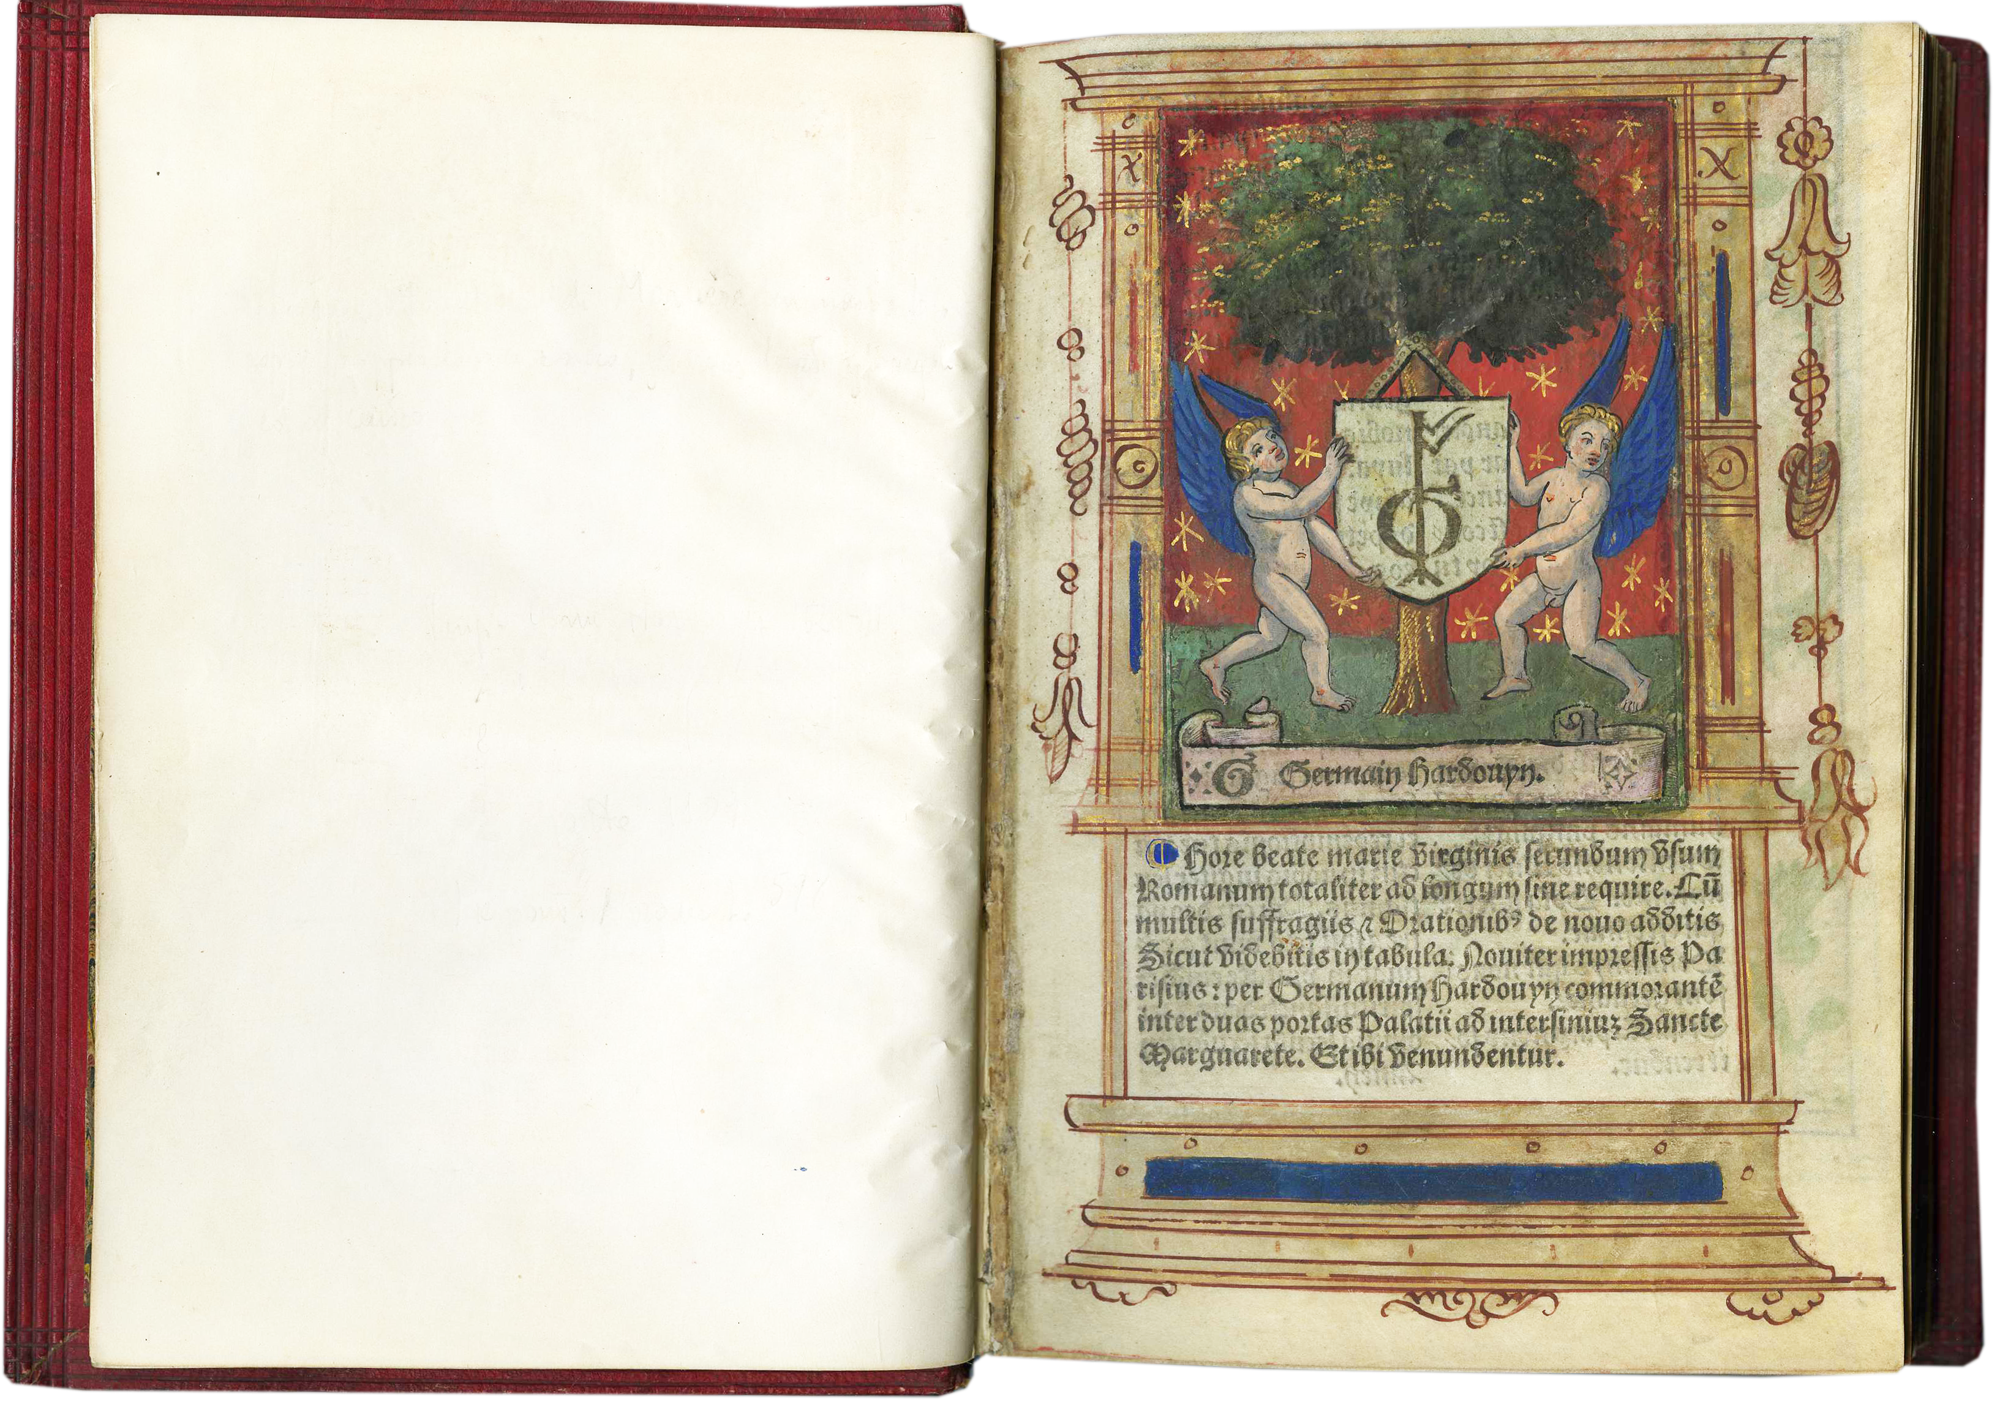 G Germain Hardouyn.
Hore beate marie virginis secundum vsum
Romanum totaliter ad longum sine require. Cū
multis suffragiis ⁊ Orationibꝰ de nouo additis
Sicut videbitis in tabula. Nouiter impressis Pa
risius: per Germanum Hardouyn commorantē
inter duas portas Palatii ad intersiniuꝫ Sancte
Marguarete. Et ibi venundentur.